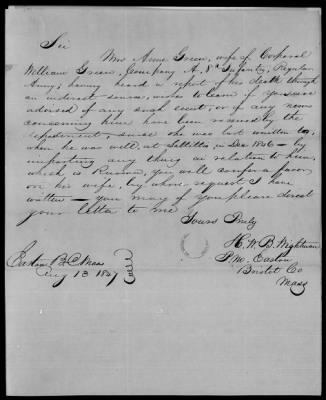 Sir
Mrs Anne Green, wife of Corporal
William Green, Company A, 8th Infantry, Regular
Army; having heard a report of his death through
an indirect source, wishes to learn if you are
advised of any such event; or if any news
concerning him have been received by the
department, since she was last written to,
when he was well, at Saltillo, in Dec 1846 — by
imparting any thing in relation to him,
which is Rumour, you will confer a favor
on his wife, by whose request I have
written — you may if you please direct
your letter to me
Yours Truly
H. M. B. Wightman
P. M. Easton
Bristol Co
Mass
Easton B. C. Mass
Aug 13 1847